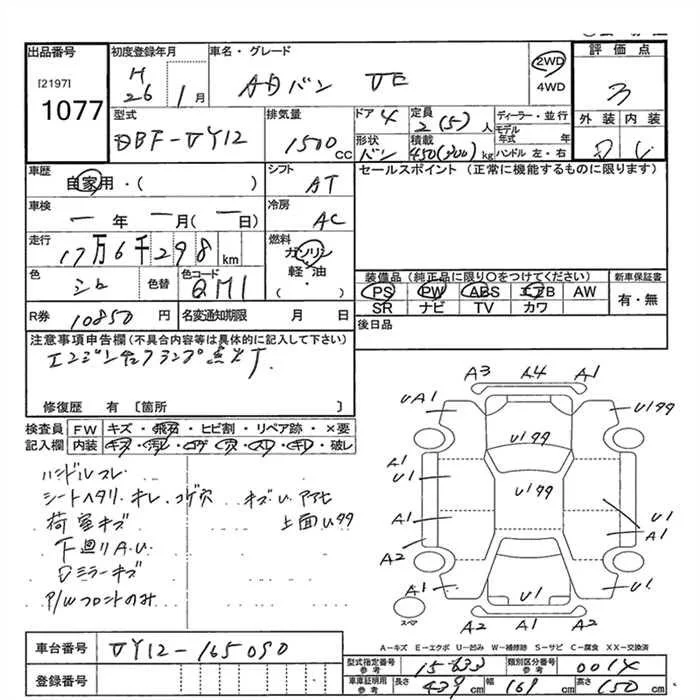 出品番号
[2197]
1077
初度登録年月
H
26 1月
車名・グレード
ADバン VE
2WD
4WD
評価点
3
外装 内装
D
型式
DBF-VY12
排気量
1500 cc
ドア 4
形状
バン
定員
2(5)人
積載
450(300)kg
ディーラー・並行
モデル
年式 年
ハンドル 左・右
車歴
自家用・( )
シフト
AT
セールスポイント(正常に機能するものに限ります)
車検
一年一月(一日)
冷房
AC
走行
17万6千298km
燃料
ガソリン
軽・油
( )
色
シロ
色替
色コード
QM1
装備品(純正品に限り〇をつけてください)
PS PW ABS エアB AW
SR ナビ TV カワ
新車保証書
有・無
R券 10850円
名変通知期限 月 日
後日品
注意事項申告欄(不具合内容等は具体的に記入して下さい)
エンジン
ランプ点灯
修復歴 有 [箇所 ]
検査員
記入欄
FW キズ・飛石・ヒビ割・リペア跡・×要
内装 キズ・汚レ・コゲ・穴・スレ・キレ・破レ
ハンドルスレ
シートヘタリ・キレ・コゲ穴
荷室キズ
下廻りA.U
Dミラーキズ
P/Wフロントのみ
キズU
上面U99
A3 A4 A1
UA1 U199
U199
A1
U1
U199
A1 U1
A1
A2
A1 U1 U1
A2 A1 A2
スペア
A-キズ E-エクボ U-凹み W-補修跡 S-サビ C-腐食 XX-交換済
車台番号 VY12-165090
登録番号
型式指定番号
参考
15633
類別区分番号
参考
0014
車庫証明用
参考
長さ 439 cm 幅 169 cm 高さ 150 cm